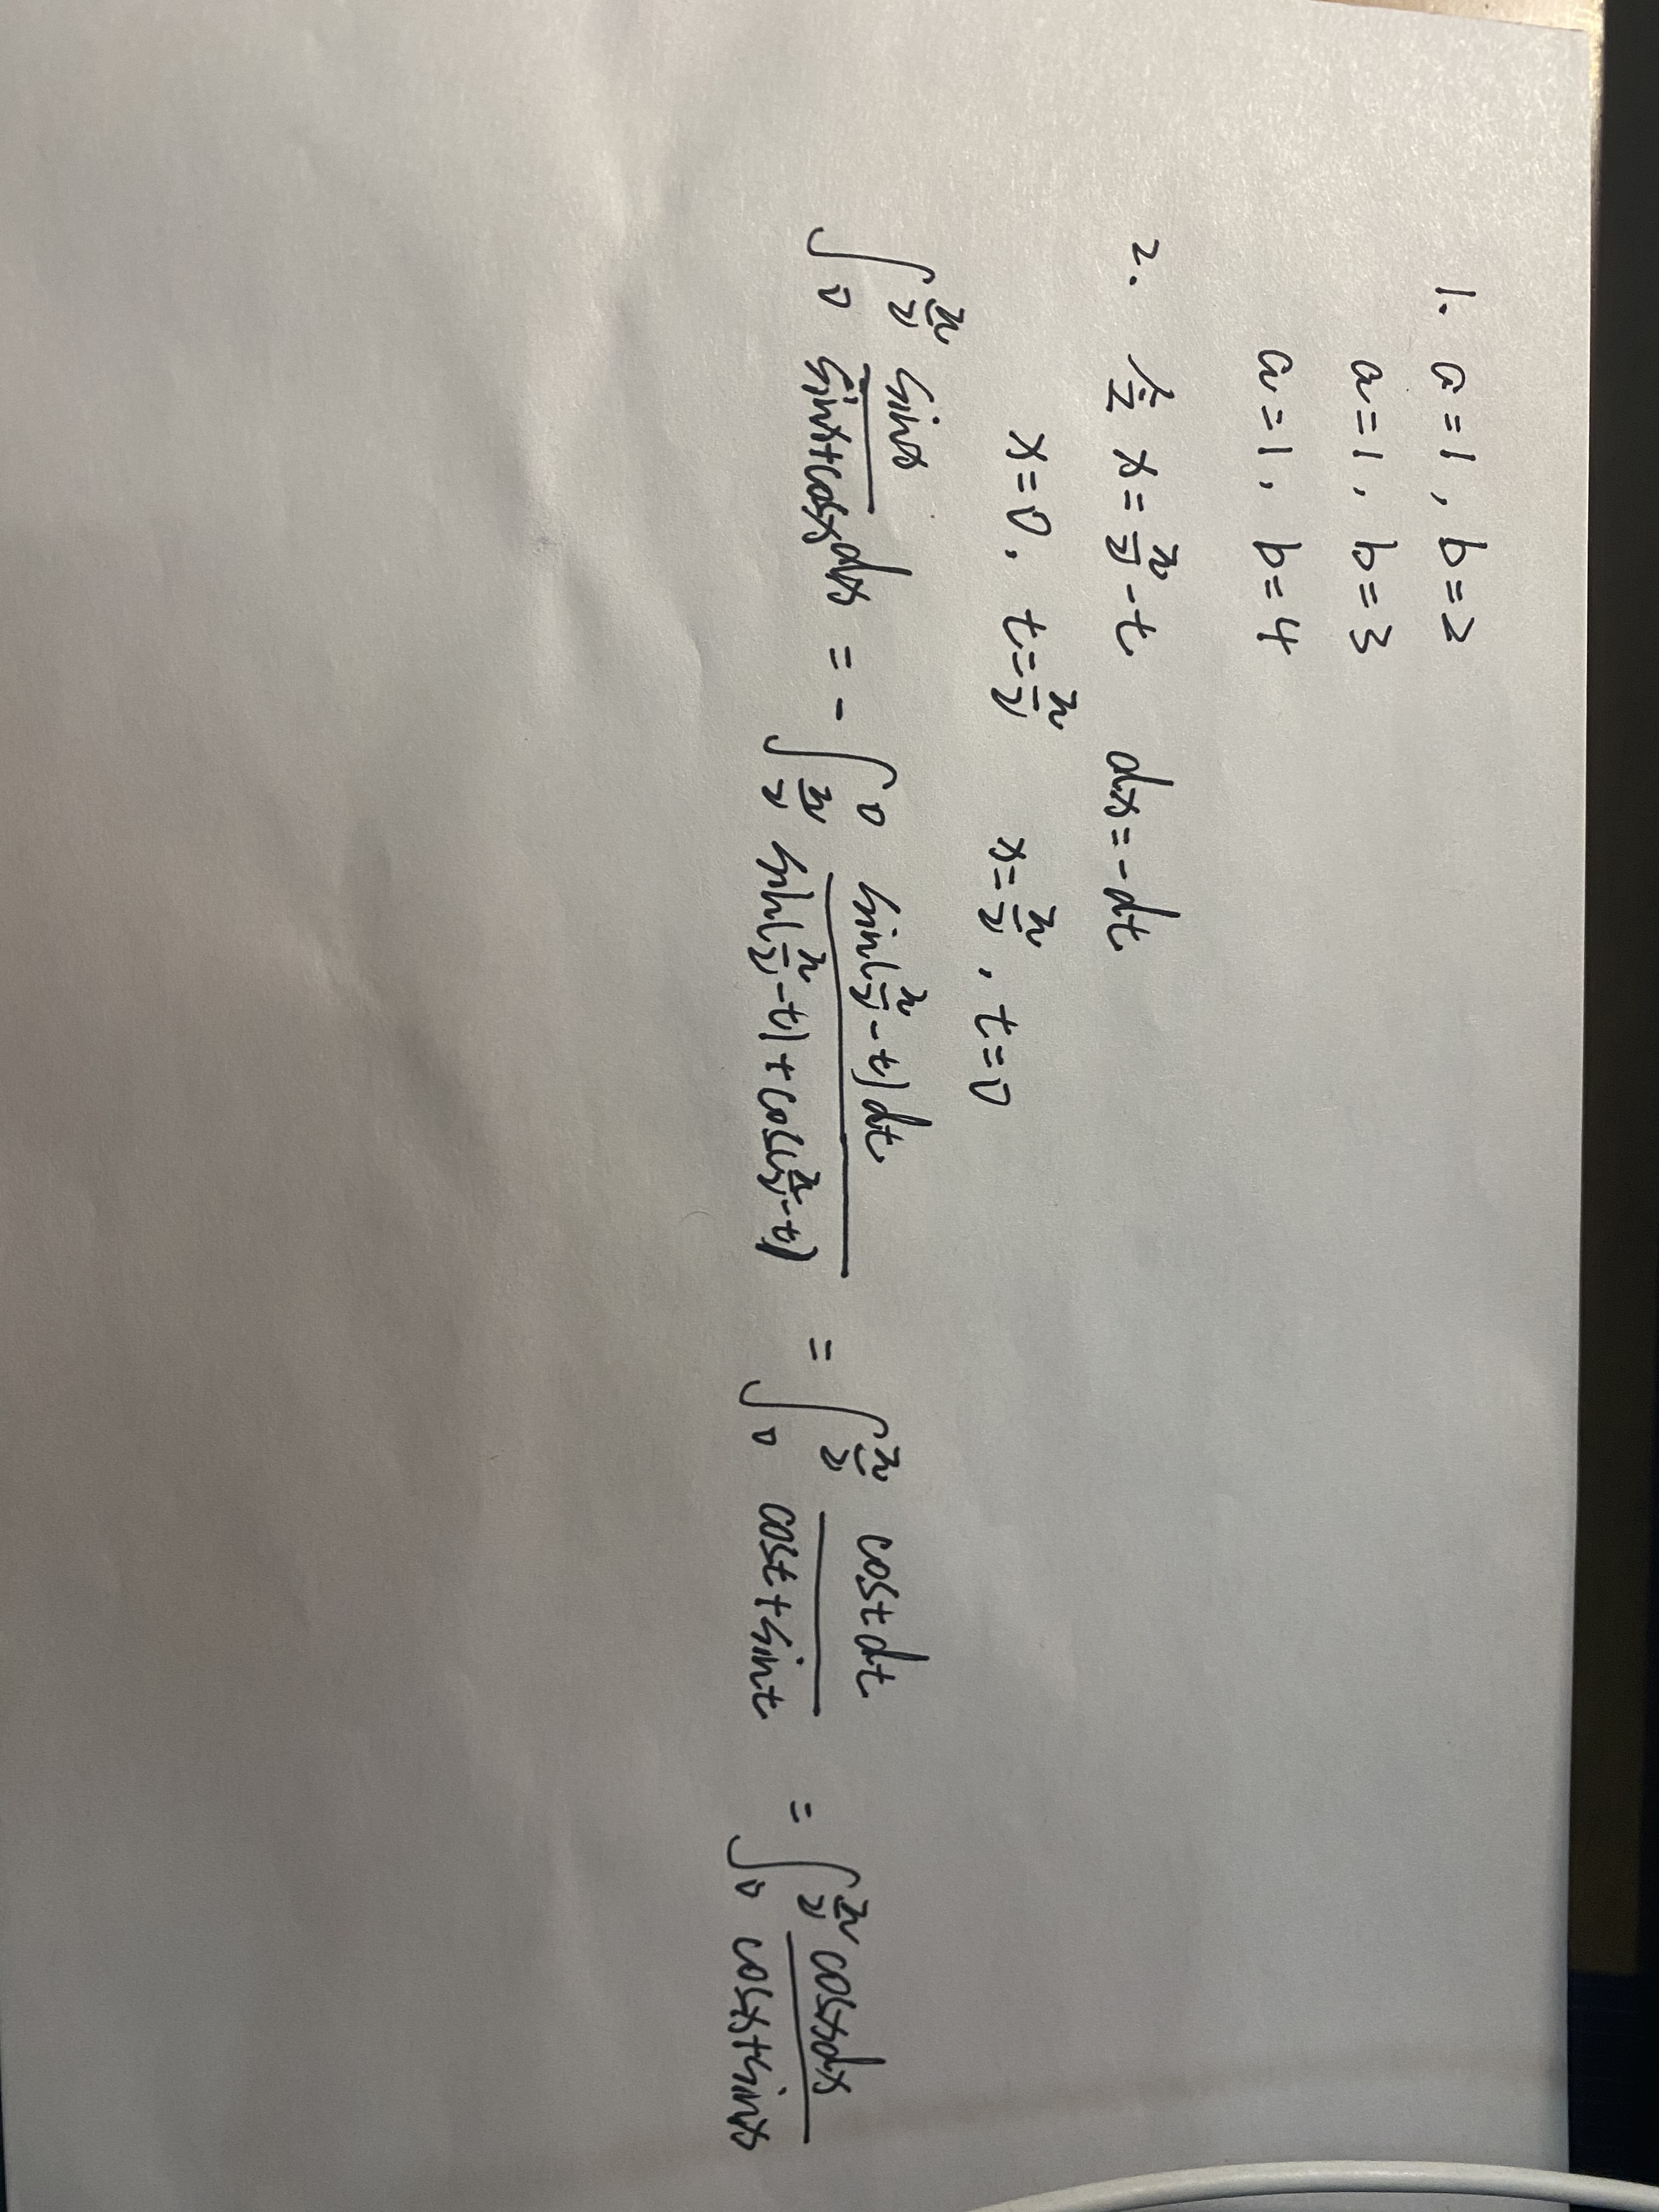 1. a=1, b=2
a=1, b=3
a=1, b=4
2. 令 x=π/2-t dx=-dt
x=0, t=π/2 x=π/2, t=0
∫₀^(π/2) sinx/(sinx+cosx) dx = -∫_(π/2)^0 sin(π/2-t)dt/(sin(π/2-t)+cos(π/2-t)) = ∫₀^(π/2) costdt/(cost+sint) = ∫₀^(π/2) cosxdx/(cosx+sinx)